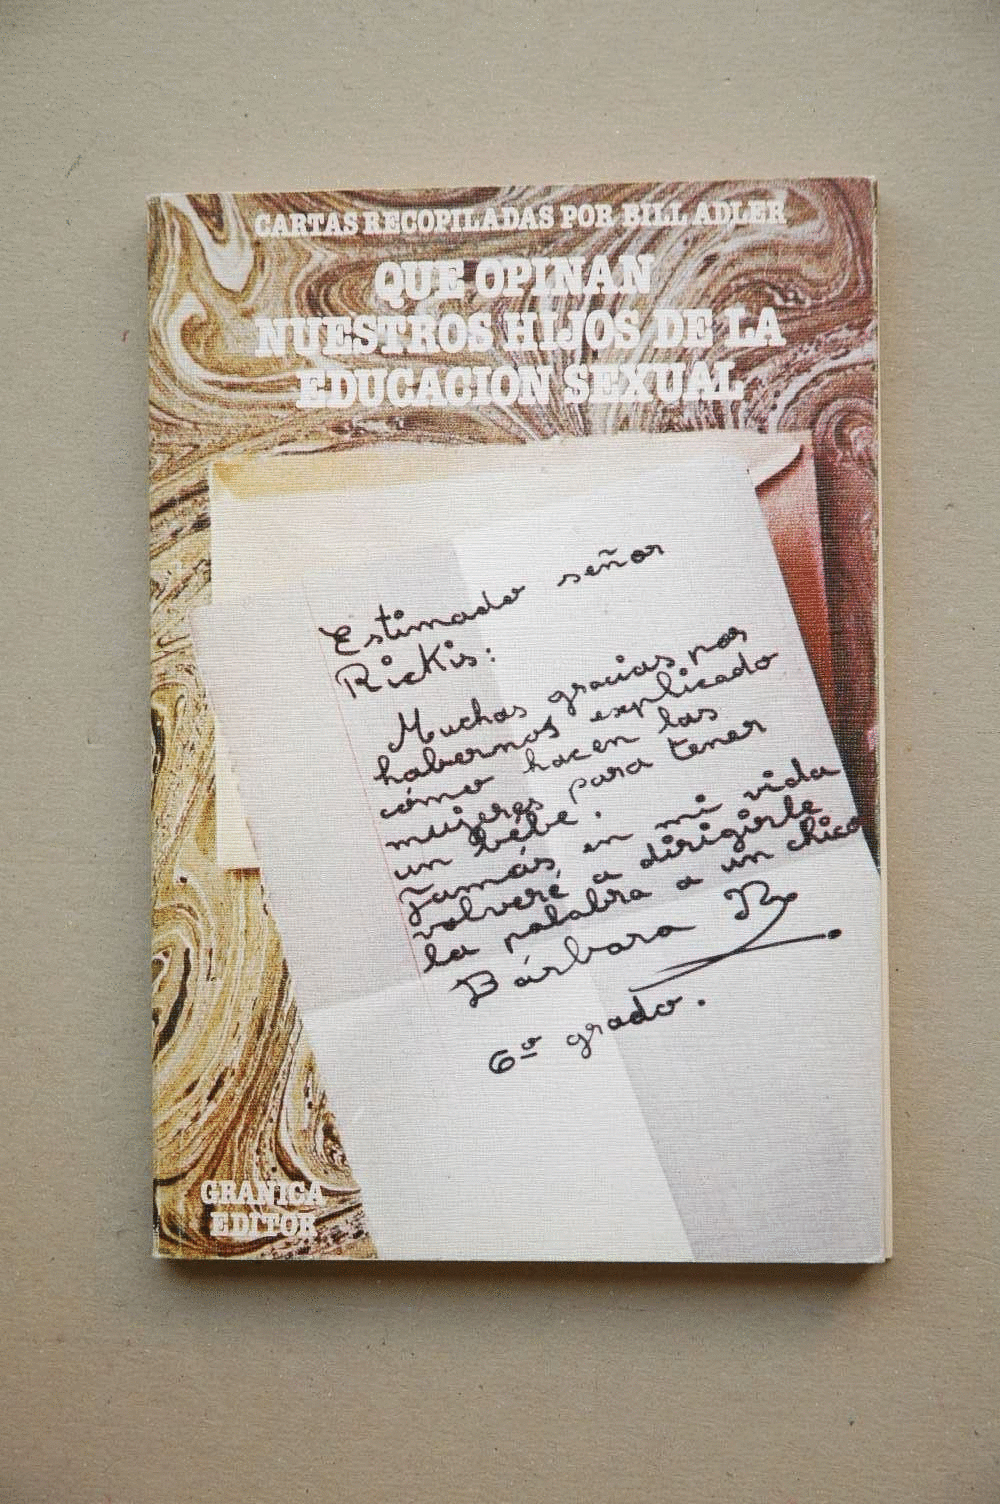 CARTAS RECOPILADAS POR BILL ADLER
QUE OPINAN
NUESTROS HIJOS DE LA
EDUCACION SEXUAL
Estimado señor
Rickis:
Muchas gracias por
habernos explicado
cómo hacen las
mujeres para tener
un bébe.
Jamás en mi vida
volveré a dirigirle
la palabra a un chico
Bárbara R.
6º grado.
GRANICA
EDITOR